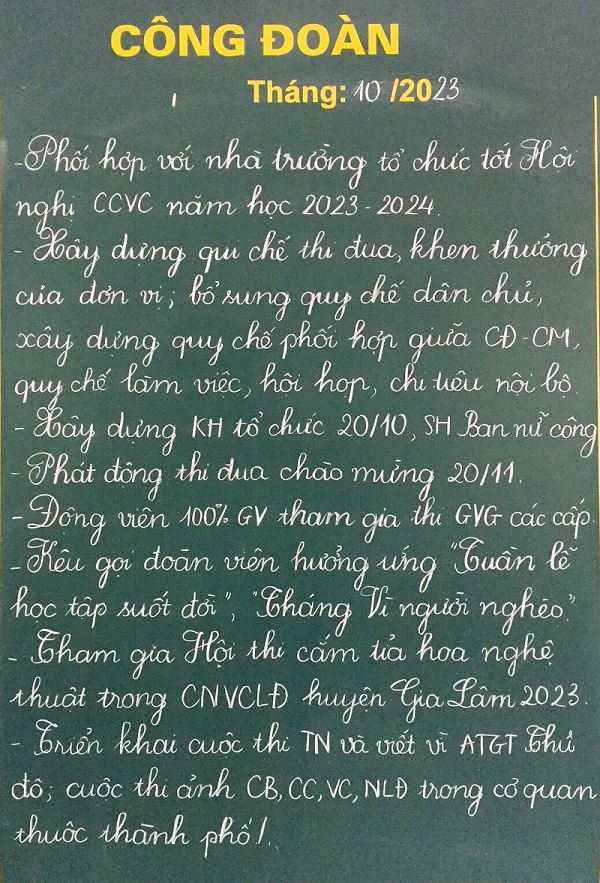 CÔNG ĐOÀN
Tháng: 10 /2023
- Phối hợp với nhà trường tổ chức tốt Hội
nghị CCVC năm học 2023 - 2024.
- Xây dựng qui chế thi đua, khen thưởng
của đơn vị; bổ sung quy chế dân chủ,
xây dựng quy chế phối hợp giữa CĐ-CM,
quy chế làm việc, hội họp, chi tiêu nội bộ.
- Xây dựng KH tổ chức 20/10, SH Ban nữ công
- Phát động thi đua chào mừng 20/11.
- Động viên 100% GV tham gia thi GVG các cấp.
- Kêu gọi đoàn viên hưởng ứng "Tuần lễ
học tập suốt đời", "Tháng Vì người nghèo."
- Tham gia Hội thi cắm tỉa hoa nghệ
thuật trong CNVCLĐ huyện Gia Lâm 2023.
- Triển khai cuộc thi TN và viết vì ATGT Thủ
đô; cuộc thi ảnh CB, CC, VC, NLĐ trong cơ quan
thuộc thành phố/.